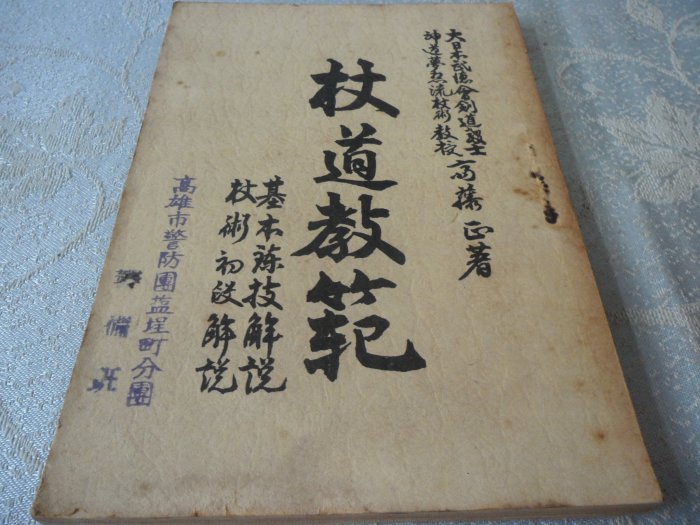 大日本武徳會剣道錬士
神道夢想流杖術教授 高藤 正著
杖道教範
基本諸技解説
杖術初段解説
高雄市警防團塩埕町分團
警備班